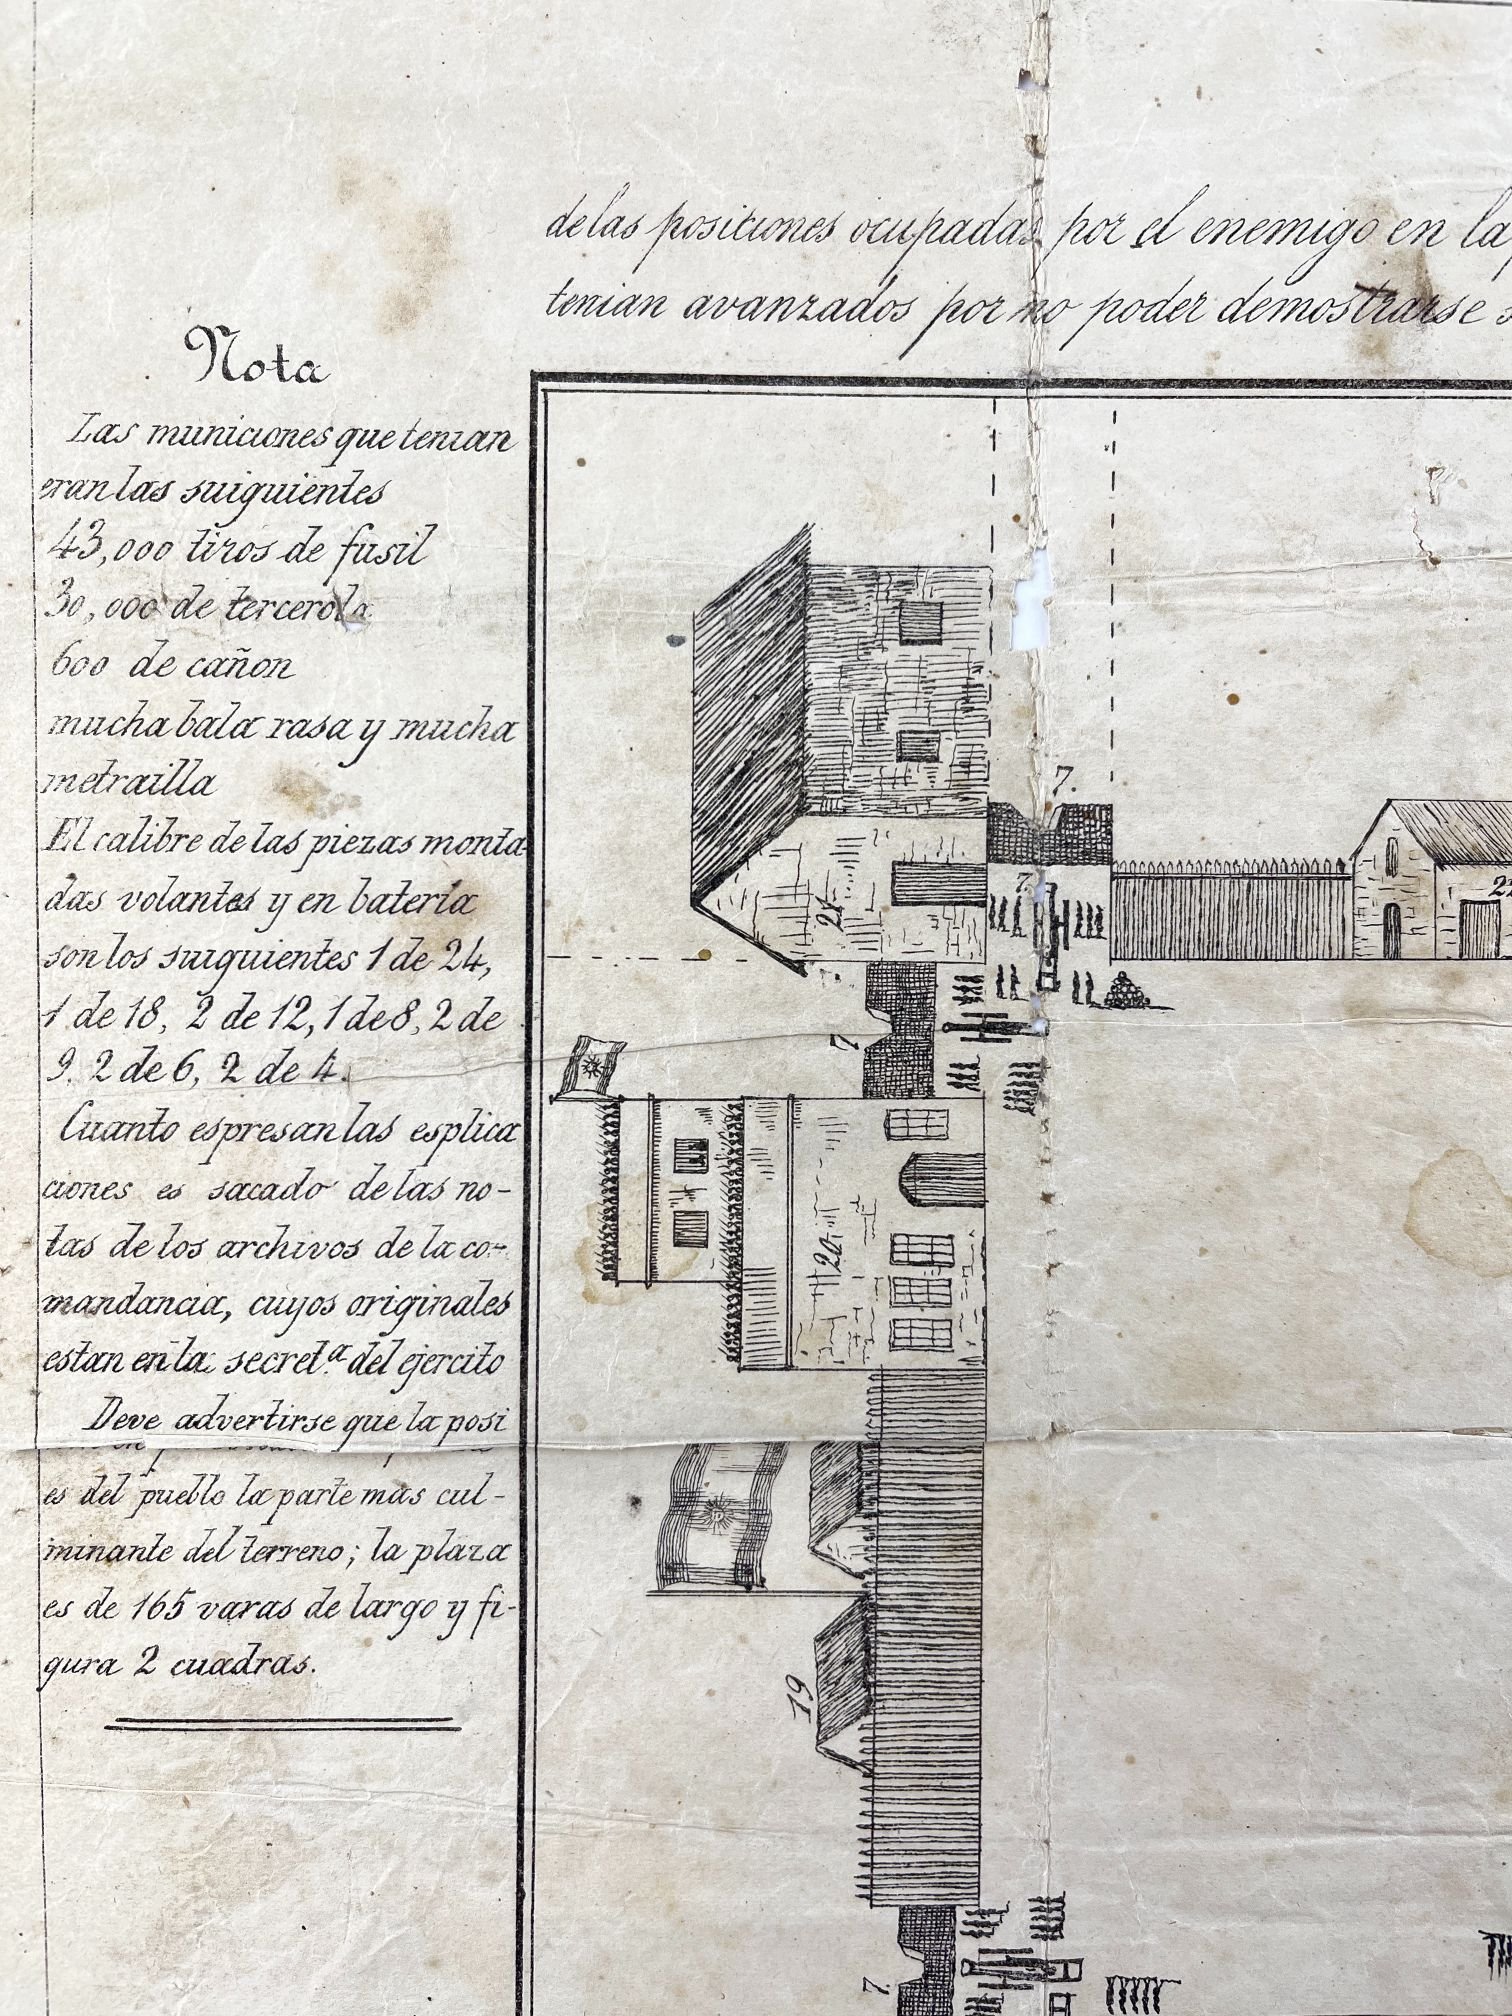 de las posiciones ocupadas por el enemigo en la
tenian avanzados por no poder demostrarse
Nota
Las municiones que tenian
eran las suiguientes
43,000 tiros de fusil
30,000 de tercerola
600 de cañon
mucha bala rasa y mucha
metrailla
El calibre de las piezas monta
das volantes y en bateria
son los suiguientes 1 de 24,
1 de 18, 2 de 12, 1 de 8, 2 de
9. 2 de 6, 2 de 4.
Cuanto espresan las esplica
ciones es sacado de las no-
tas de los archivos de la co-
mandancia, cuyos originales
estan en la secret.ª del ejercito
Deve advertirse que la posi
es del pueblo la parte mas cul-
minante del terreno; la plaza
es de 165 varas de largo y fi-
gura 2 cuadras.
7.
7.
21
7
20
19
7.